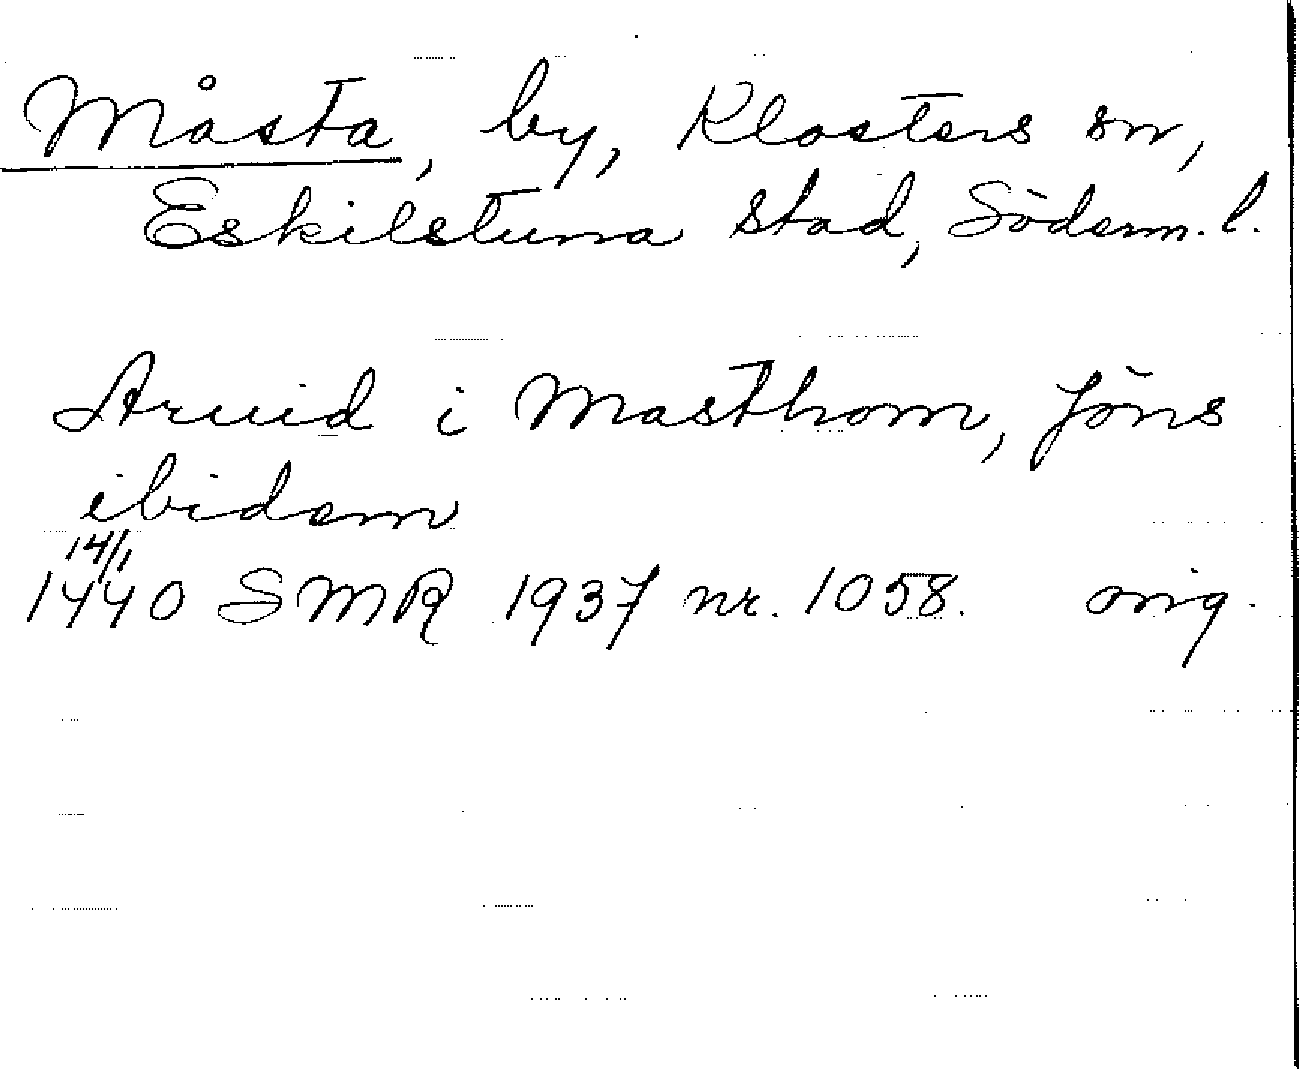 Måsta, by, Klosters sn,
Eskilstuna stad, Söderm. l.
Arvid i Masthom, Jöns
ibidem
14/1
1440 SMR 1937 nr. 1058. orig.